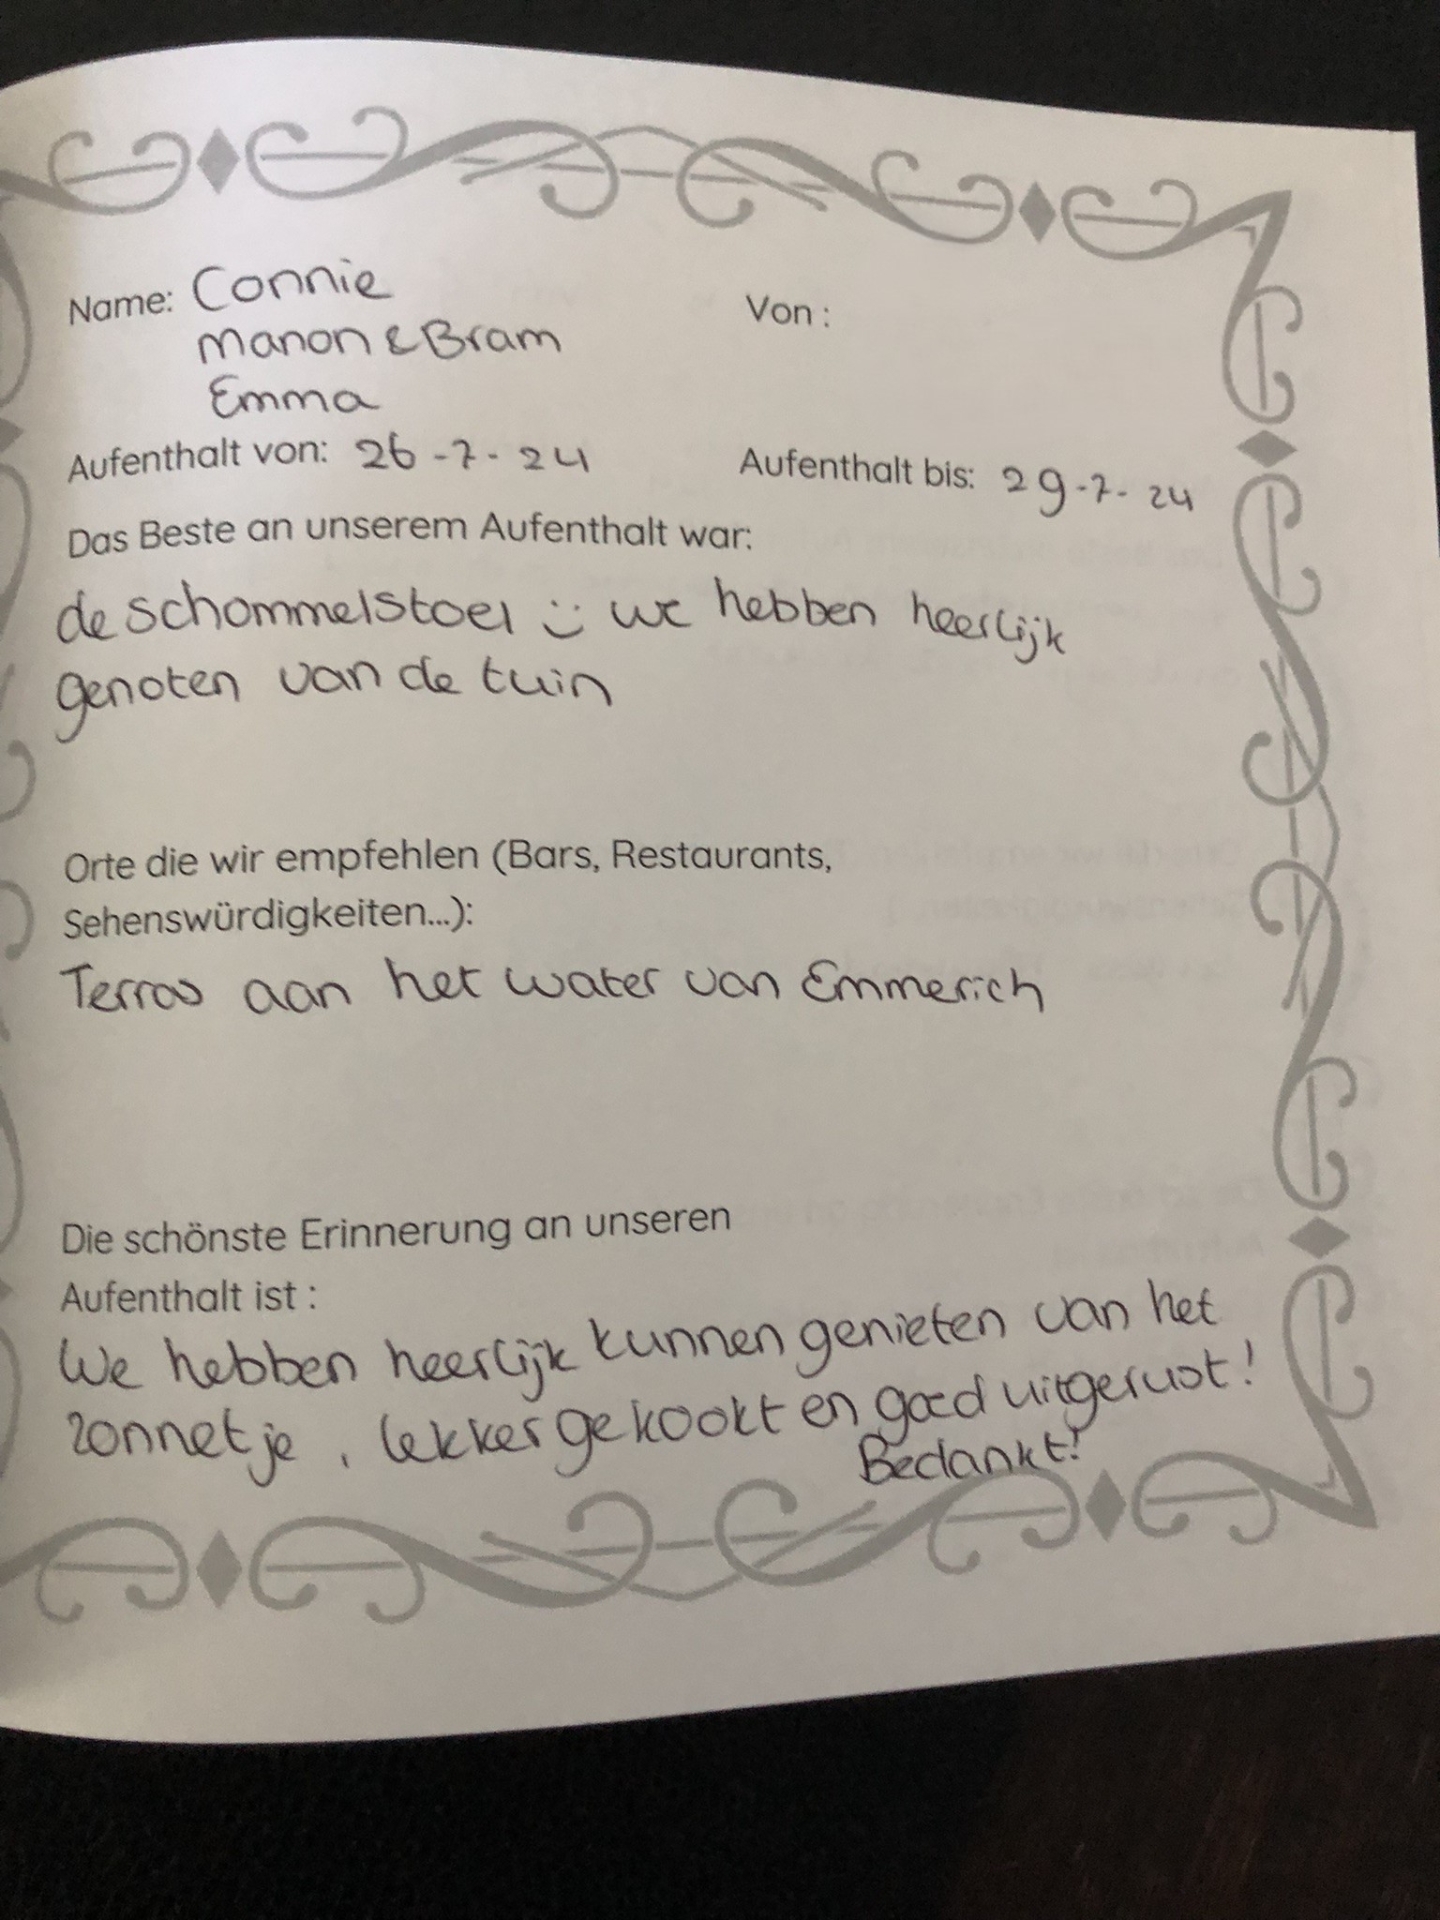 Name: Connie Von :
Manon & Bram
Emma
Aufenthalt von: 26-7-24 Aufenthalt bis: 29-7-24
Das Beste an unserem Aufenthalt war:
de schommelstoel :) we hebben heerlijk
genoten van de tuin
Orte die wir empfehlen (Bars, Restaurants,
Sehenswürdigkeiten...):
Terras aan het water van Emmerich
Die schönste Erinnerung an unseren
Aufenthalt ist :
We hebben heerlijk kunnen genieten van het
zonnetje, lekker gekookt en goed uitgerust!
Bedankt!